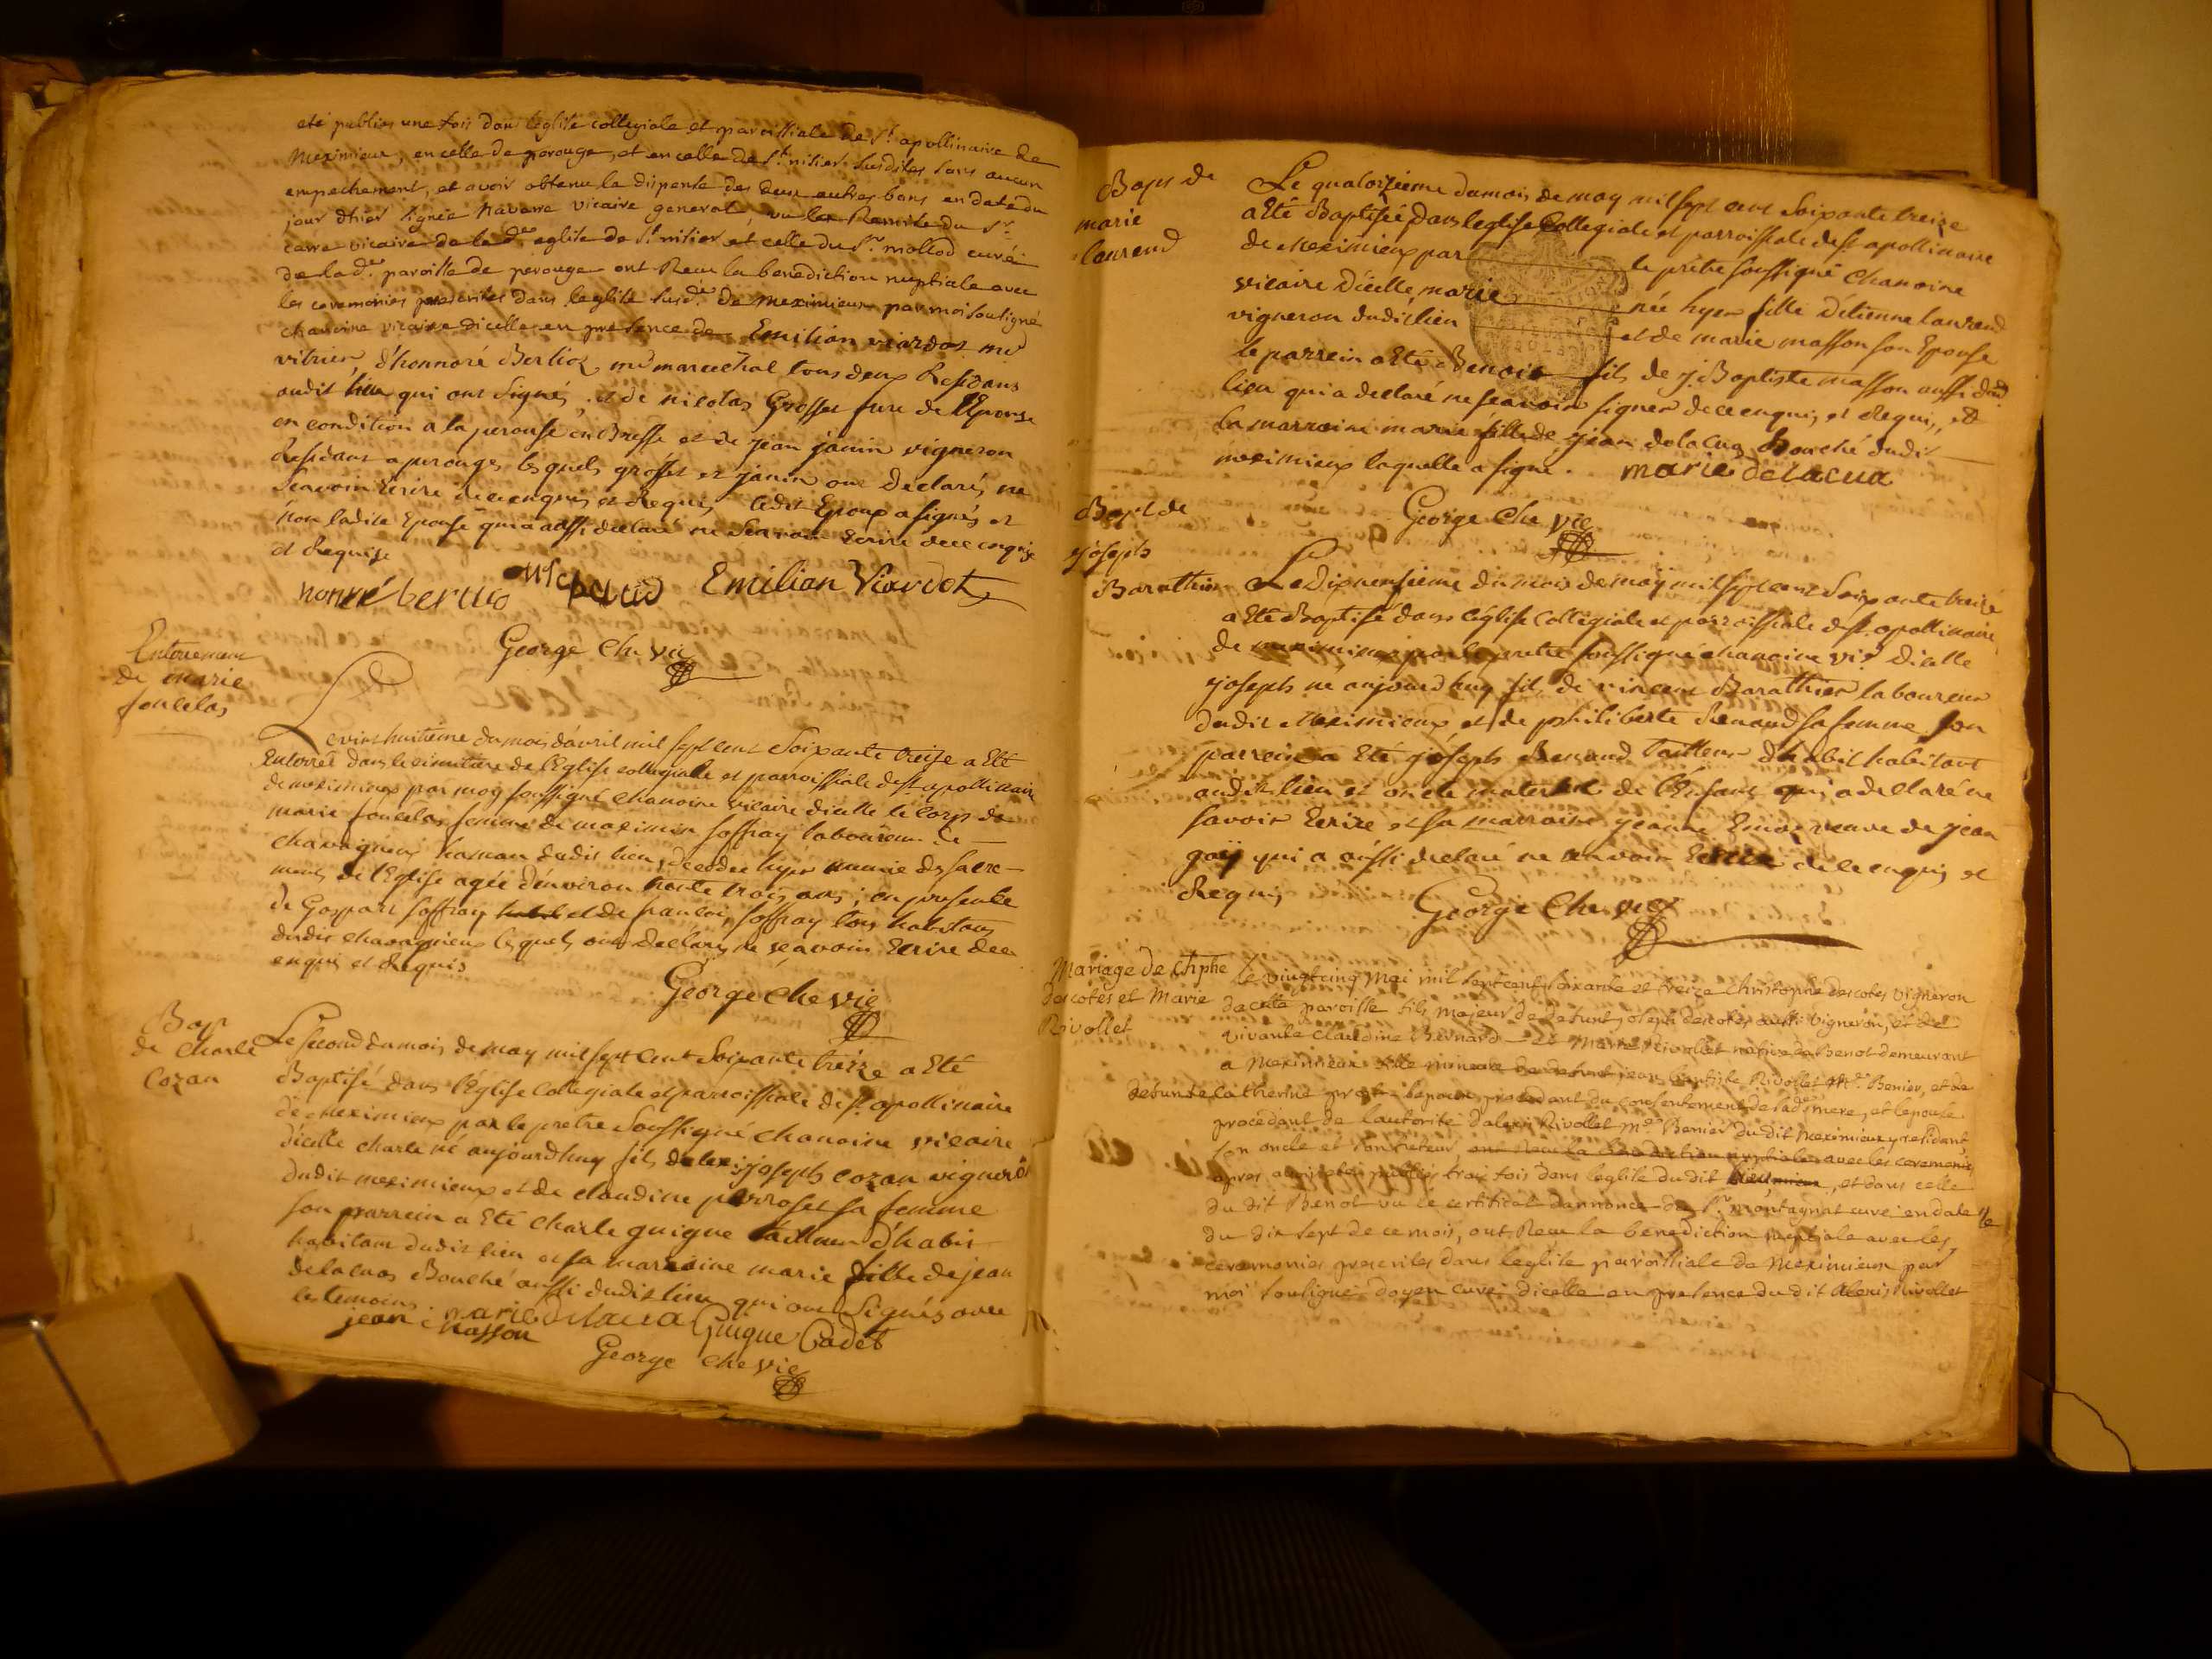 eté publiés une fois dans leglise collegiale et paroissiale de St. apollinaire de
Meximieux, en celle de perouge, et en celle de St. nisier susdites sans aucun
empechement, et avoir obtenu la dispense des deux autres bans en date du
jour dhier signée Navarre vicaire general, vu la Remise du Sr.
carre vicaire de lade. eglise de St nisier et celle du Sr. mollod curé
de lade. paroisse de perouge ont Recu la benediction nuptiale avec
les ceremonies prescrites dans leglise susde. de meximieux par moi soussigné
chanoine vicaire dicelle en presence de Emilian viardot md
vitrier, d'honnoré Berlioz md marechal tous deux Residans
audit lieu qui ont signés, et de nicolas Grosset frere de l'Epouse
en condition a la perouse en Bresse et de jean janin vigneron
Residant a perouges lesquels grosset et janin ont declarés ne
Scavoir Ecrire de ce enquis et Requis ledit Epoux a signés et
non ladite Epouse qui a aussi declaré ne Scavoir Ecrire de ce enquise
et Requise
Emilian Viardot
George Chevie
Enterement
de marie
foncelas
Le vint huitieme du mois d'avril mil sept cent Soixante treize a Eté
Enterrée dans le cimitiere de l'Eglise collegiale et parroissiale de st. apollinaire
de meximieux par moy soussigné chanoine vicaire dicelle le corps de
marie foncelas femme de maximin soffray laboureur de
chavagneux hamau dudit lieu, decedée hyer munie des sacre-
ments de l'Eglise agée d'environ trente trois ans, en presence
de Gaspart soffray et de francois soffray tous habitans
dudit chavagneux lesquels ont declarés ne scavoir Ecrire de ce
enquis et Requis
George Chevie
Bap
de Charle
Cozan
Le second du mois de may mil sept cent Soixante treize a Eté
Baptisé dans l'Eglise Collegiale et parroissiale de st. apollinaire
de meximieux par le pretre Soussigné chanoine vicaire
dicelle charle né aujourdhuy fils de joseph cozan vigneron
dudit meximieux et de claudine perroset sa femme
son parrein a Eté charle guigue tailleur d'habit
habitant dudit lieu et sa marraine marie fille de jean
delacuas Bouché aussi dudit lieu qui ont signés avec
les temoins
marie delacua Guigue Cadet
jean masson
George Chevie
Bapt de
marie
laurend
Le quatorzieme du mois de may mil sept cent Soixante treize
a Eté Baptisée dans leglise Collegiale et parroissiale de st. apollinaire
de Meximieux par le prêtre soussigné chanoine
vicaire d'icelle, marie née hyer fille d'étienne laurend
vigneron dudit lieu et de marie masson son Epouse
le parrein a Eté Benoit fils de j. Baptiste masson aussi dudit
lieu qui a declaré ne scavoir signer de ce enquis, et Requis, et
la marraine marie fille de jean delacua Bouché dudit
meximieux laquelle a signé. marie delacua
George Chevie
Bapt de
joseph
Barathier
Le dixneufsieme du mois de may mil sept cent Soixante treize
a Eté Baptisé dans l'église Collegiale et parroissiale de st. apollinaire
de meximieux par le pretre soussigné chanoine vire. dicelle
joseph né aujourdhuy fils de vincent Barathier laboureur
dudit Meximieux et de philiberte Renand sa femme son
parrein a Eté joseph Renand Tailleur d'habit habitant
audit lieu et oncle maternel de l'Enfant qui a declaré ne
savoir Ecrire et sa marraine jeanne veuve de jean
gay qui a aussi declaré ne scavoir Ecrire de ce enquis et
Requis
George Chevie
Mariage de Chphe
descotes et Marie
Rivollet
Le vingtcinq Mai mil sept cent soixante et treize Christophe descotes vigneron
de cette paroisse fils majeur de defunt joseph descotes aussi vigneron, et de
vivante Claudine Bernard et Marie Rivollet native de Benot demeurant
a Meximieux fille mineure de defunt jean baptiste Rivollet Md. Benier, et de
defunte catherine lepoux procedant du consentement de sade. mere, et lepouse
procedant de lautorité dalexis Rivollet Md. Benier du dit Meximieux y residant
son oncle et son tuteur, ont Recu la benediction nuptiale avec les ceremonies
apres avoir etés publiés trois fois dans leglise du dit, et dans celle
du dit Benot vu le certificat dannonce de Sr. montagnat curé en date
du dix sept de ce mois, ont Recu la benediction nuptiale avec les
ceremonies prescrites dans leglise paroissiale de Meximieux par
moi soussigné doyen curé dicelle en presence du dit Alexis Rivollet